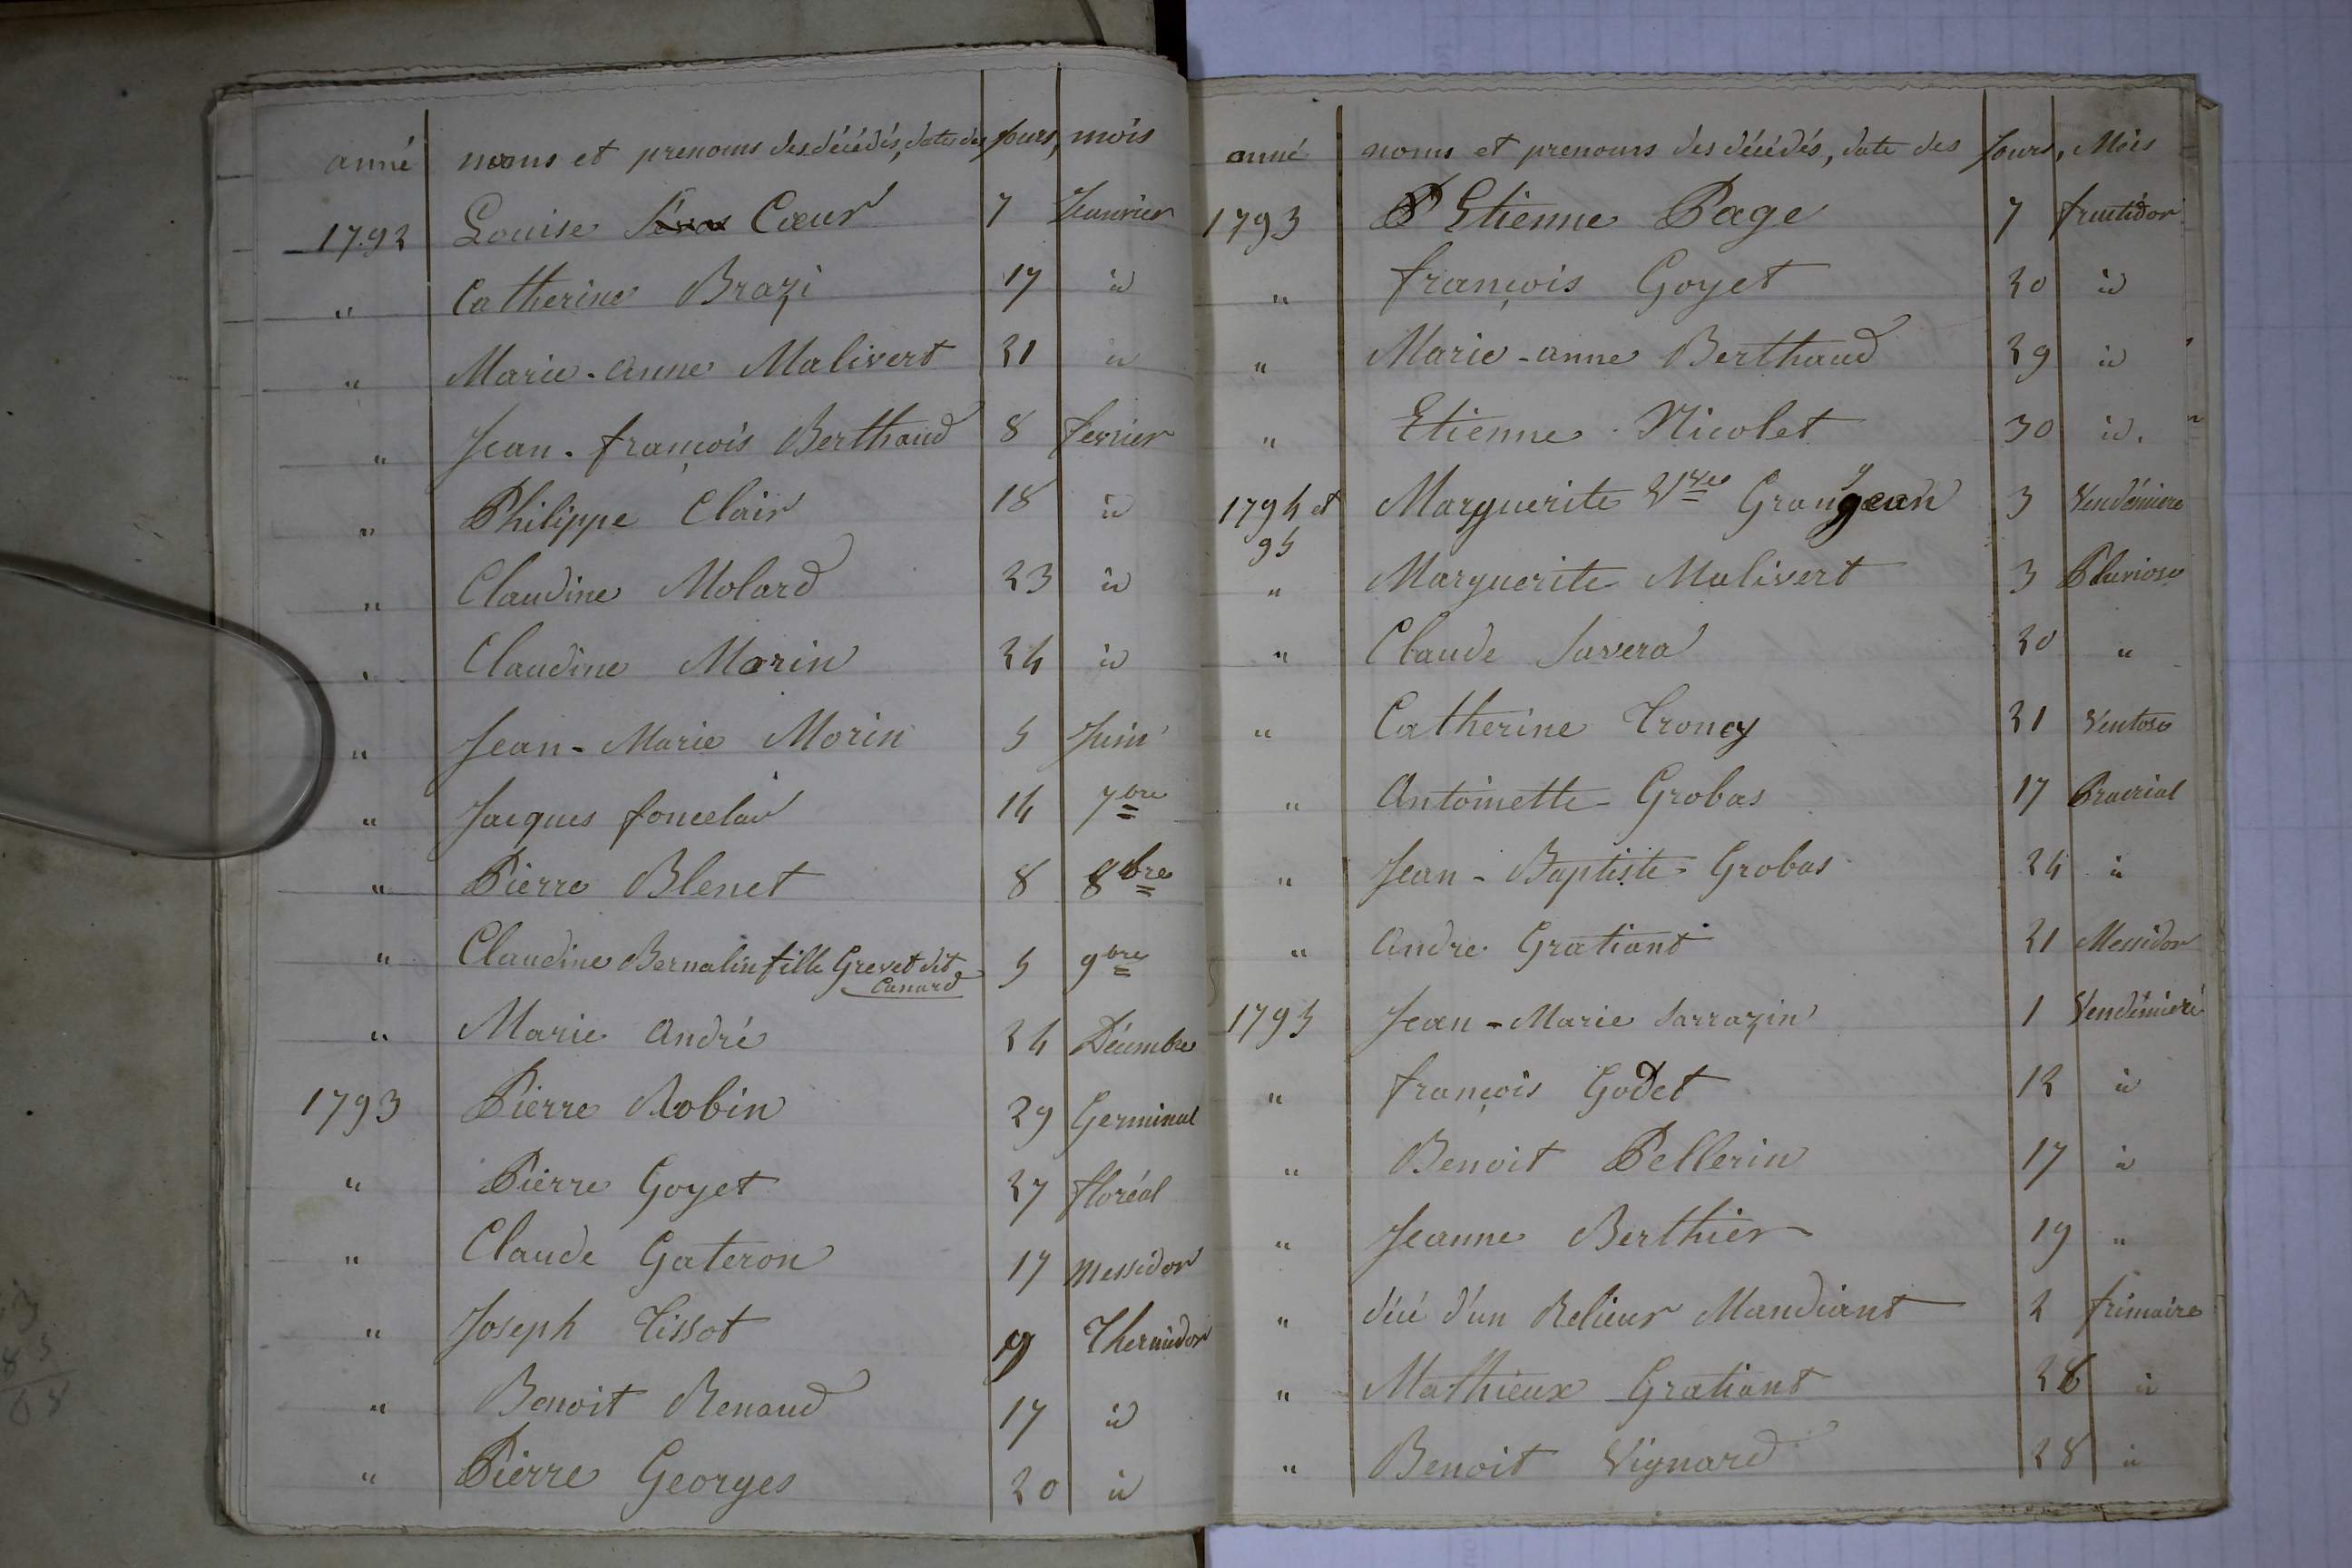 anné noms et prenoms des décédés, date des Jours, mois
1792 Louise Cœur 7 Janvier
" Catherine Brazi 17 id
" Marie-Anne Malivert 21 id
" Jean-françois Berthaud 8 fevrier
" Philippe Clair 18 id
" Claudine Molard 23 id
" Claudine Morin 24 id
" Jean-Marie Morin 5 Juin
" Jacques 14 7bre
" Pierre Blenet 8 8bre
" Claudine Bernalin fille Grevet dit 5 9bre
Canard
" Marie André 24 Décembre
1793 Pierre Robin 29 Germinal
" Pierre Goyet 27 floréal
" Claude Gateron 17 Messidor
" Joseph Tissot 9 Thermidor
" Benoit Renaud 17 id
" Pierre Georges 20 id
anné noms et prenoms des décédés, date des Jours, Mois
1793 Etienne Page 7 fructidor
" françois Goyet 20 id
" Marie-anne Berthaud 29 id
" Etienne Nicolet 30 id.
1794 et Marguerite Vve Grangean 3 Vendémiere
95
" Marguerite Malivert 3 Pluviose
" Claude Savera 20 "
" Catherine Troncy 21 Ventose
" Antoinette Grobas 17 Prairial
" Jean-Baptiste Grobas 24 id
" André Gratiant 21 Messidor
1795 Jean-Marie Sarrazin 1 Vendémiere
" françois Godet 12 id
" Benoit Pellerin 17 id
" Jeanne Berthier 19 "
" déié d'un Relieur Mandiant 2 frimaire
" Mathieux Gratiant 26 id
" Benoit Vignard 28 id